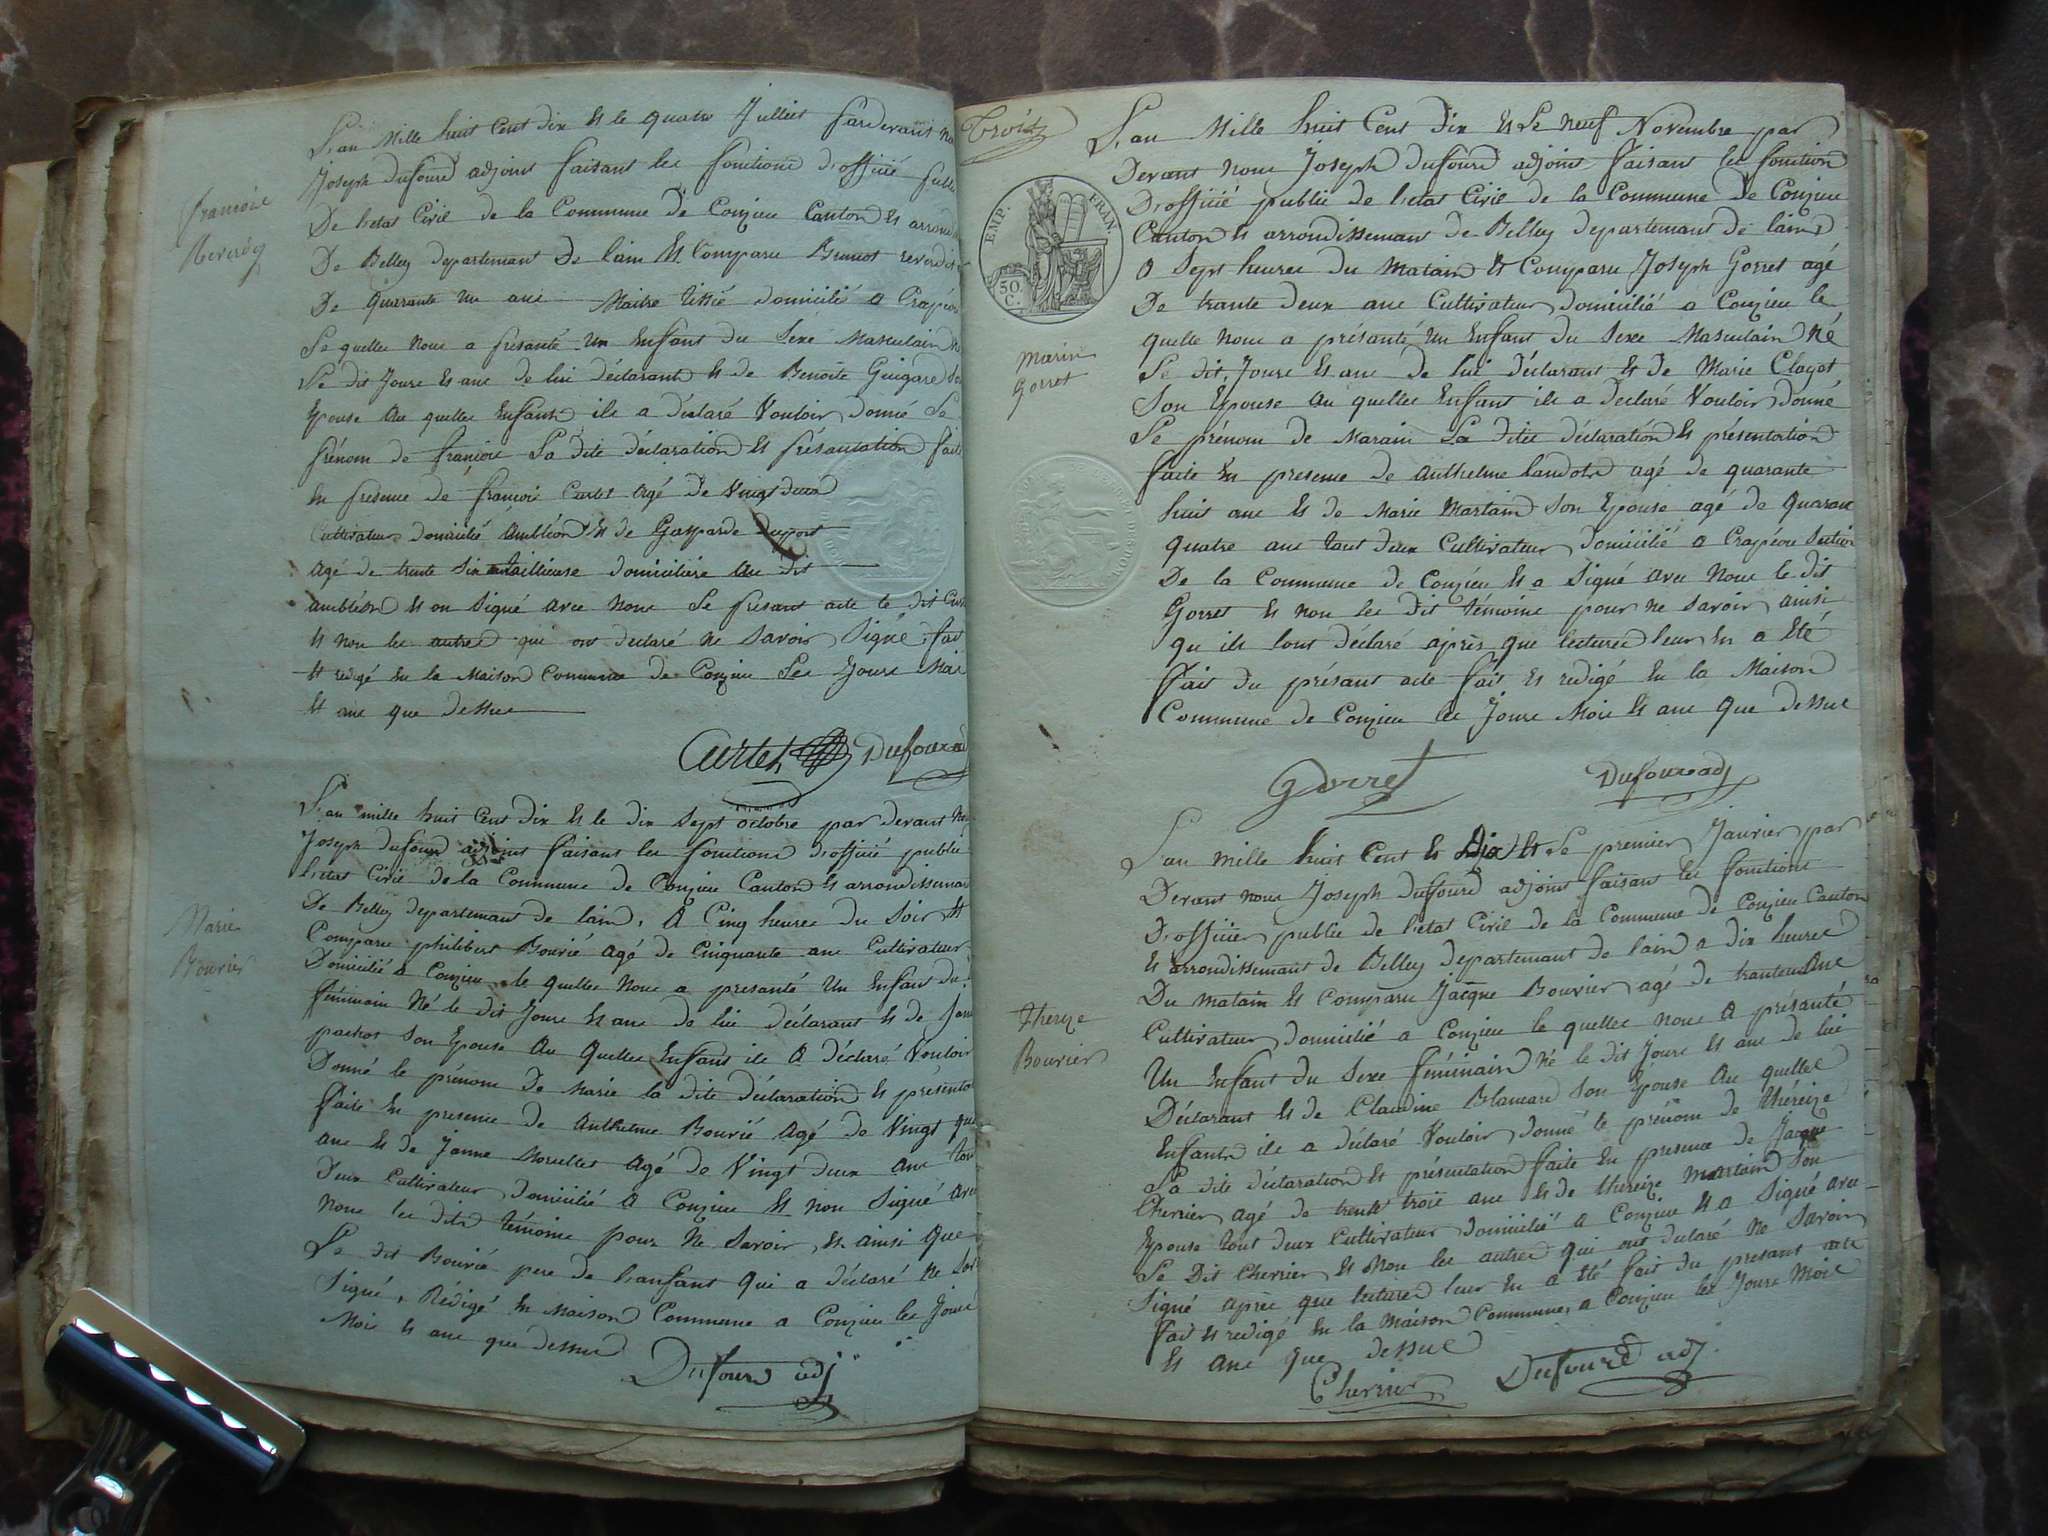 L'an Mille huit Cent dix Et le quatre Juillies pardevant no
Joseph dufourd adjoint faisant les fonitions d'officié publi
De l'etat Civil de la Commune de Conzieu Canton Et arrondi
De Belley departement De lain Et Comparu Reverdi
De quarante un ans Maitre tissié domicilié a Crapéou
Le quelles nous a présanté un Enfant du sexe Masculain n
Le dit Jours Et ans de lui déclarant Et de Benoite Guigard son
Epouse au quelles Enfant ile a déclaré Vouloir donné Le
prénom de françois La dite déclaration Et présantation faite
En présence de françois Curtet agé De Vingt deux
Cultivateur domicilié ambléon Et de Gasparde dupont
agé de trente six taillieuse domiciliere au dit
ambléon Et on Signé avec nous Le présant acte le dit Curt
Et non les autres qui ont declaré ne Savoir Signé fait
Et redigé En la Maison Commune de Conzieu Les Jours Mois
Et ans que dessus
françois
Reverdy
Curtet Dufourd ad
L'an mille huit Cent dix Et le dix Sept octobre par devant no
Joseph dufourd adjoint faisant les fonitions d'officié publié
l'etat Civil de la Commune de Conzieu Canton Et arrondisseman
De Belley departement de lain, A Cinq heures du Soir Et
Comparu philibert Bouvié agé de Cinquante ans Cultivateur
Domicilié a Conzieu le quelles nous a presanté Un Enfant du
féminain Né le dit Jours Et ans de lui déclarant Et de Jan
pachot Son Epouse Au quelles Enfant ile a déclaré Vouloir
Donné le prénom De Marie la dite déclaration Et présenta
faite En presence de Anthelme Bouvié agé de Vingt qua
ans Et de Janne agé De Vingt deux ans tou
Deux Cultivateur domicilié a Conzieu Et non Signé avec
nous les dits témoins pour ne Savoir, Et ainsi que
Le dit Bouvié pere de l'anfant qui a déclaré ne Savo
Signé, Rédigé En Maison Commune a Conzieu les Jours
Mois Et ans que dessus
Marie
Bouvier
Dufourd adj
Trois
EMP. FRAN.
50 C.
L'an Mille huit Cent dix Et Le neuf Novembre par
Devant nous Joseph dufourd adjoint faisant les fonition
D'officié publie de l'etat Civil de la Commune De Conzieu
Canton Et arrondissemant de Belley departemant de lain
a Sept heures du Matain Et Comparu Joseph Gorret agé
De trante deux ans Cultivateur domicilié a Conzieu le
quelle nous a présanté un Enfant du Sexe Masculain Né
Le dit Jours Et ans de lui déclarant Et de Marie Clayot
Son Epouse au quelles Enfant ile a declaré Vouloir donné
Le prénom de Marain La dites déclaration Et présentation
faite En presense de anthelme landot agé de quarante
huit ans Et de Marie Martain Son Epouse agé de quarante
quatre ans tout deux Cultivateur domicilié a Crapéou Section
De la Commune de Conzieu Et a Signé avec Nous le dit
Gorret Et non les dit témoins pour ne Savoir ainsi
qu ils lont declaré après que lectures leur En a Eté
fait du présant acte fait Et redigé En la Maison
Commune de Conzieu les Jours Mois Et ans que dessus
marin
gorret
gorret Dufourd adj
L'an mille huit Cent Et Dix Et Le premier Janvier par
Devant nous Joseph Dufourd adjoint faisant les fonitions
D'officier publie de l'etat Civil de la Commune de Conzieu Canton
Et arrondissemant de Belley departemant de lain a dix heures
Du matain Et Comparu Jacque Bouvier agé de trante
Cultivateur domicilié a Conzieu le quelles nous a présanté
Un Enfant du Sexe féminain né le dit Jours Et ans de lui
Déclarant Et de Claudine Blancard Son Epouse au quelles
Enfant ile a déclaré Vouloir donné le prénom de théreize
La dite déclaration Et présentation faite En presence de Jacque
Cherrier agé de trente trois ans Et de thereize martain Son
Epouse tout deux Cultivateur domicilié a Conzieu Et a Signé avec
Le Dit Cherrier Et Non les autres qui ont declaré Ne Savoir
Signé après que lectures leur En a Eté fait du presant acte
fait Et redigé En la Maison Commune a Conzieu les Jours Mois
Et ans que dessus
thereze
Bouvier
Cherrier Dufourd adj.